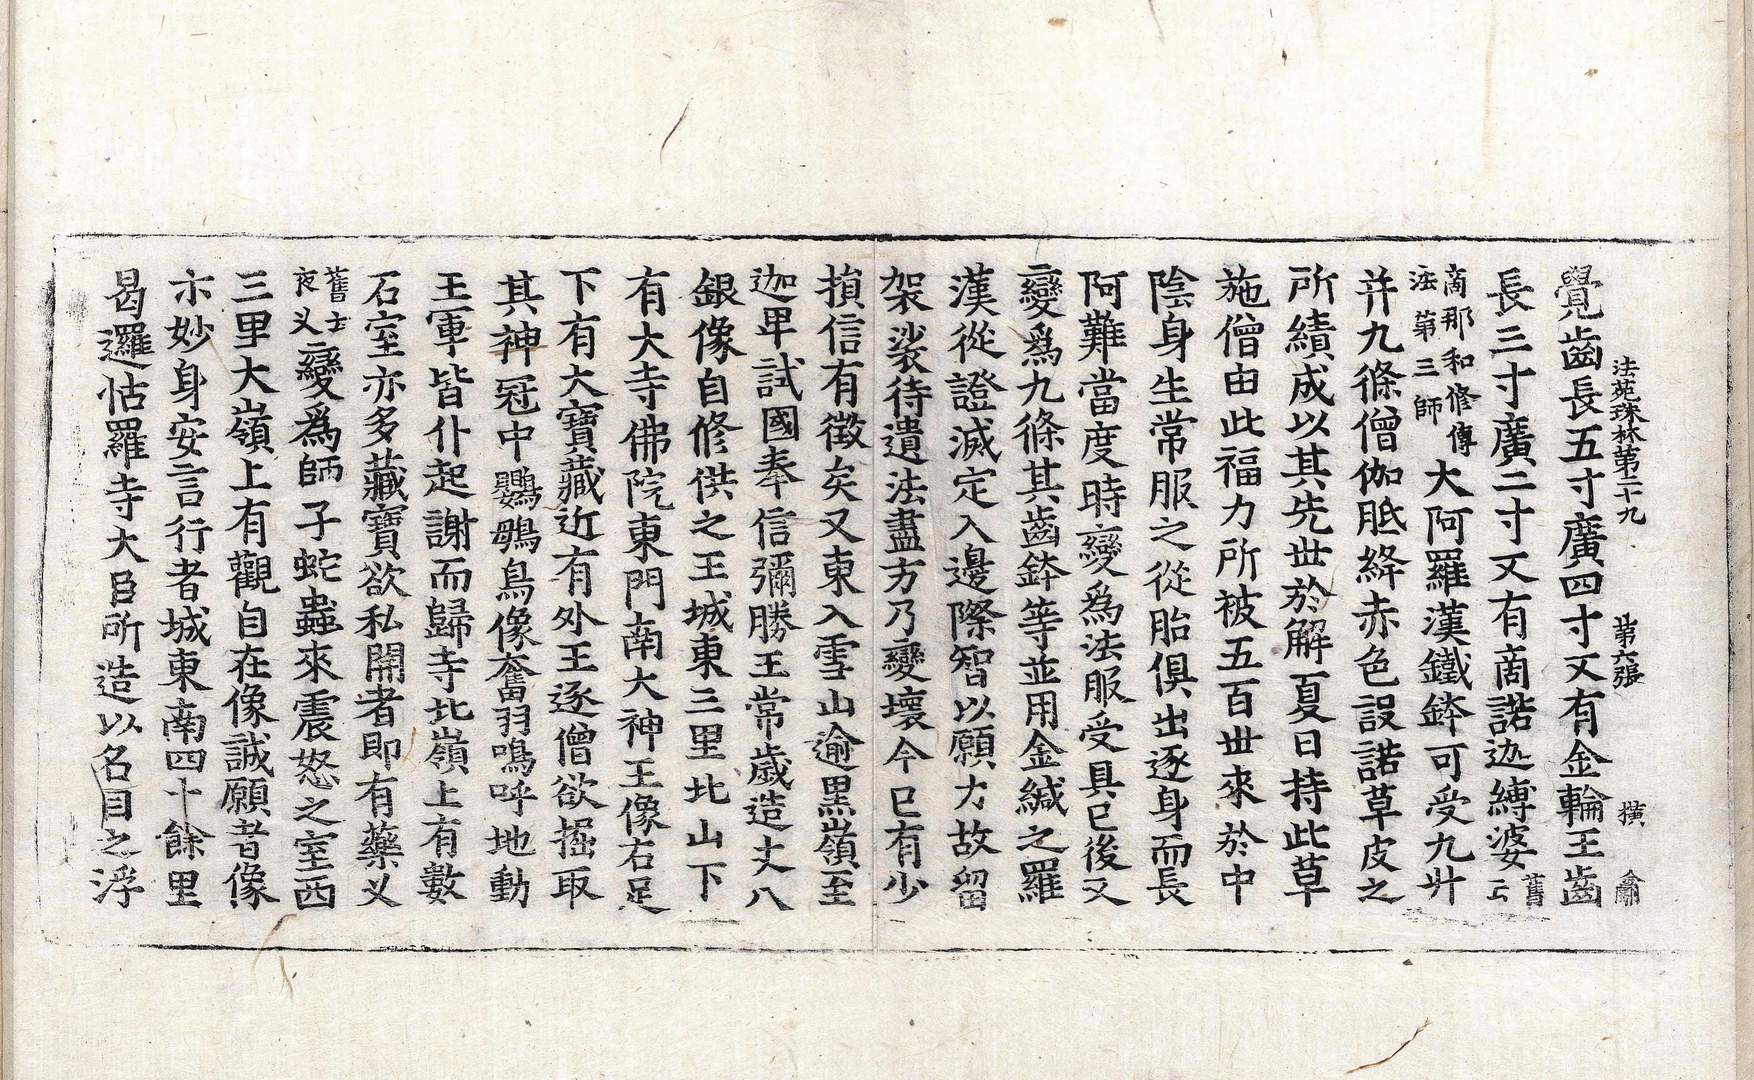 法苑珠林第二十九 第六張 横
覺齒長五寸廣四寸又有金輪王齒
長三寸廣二寸又有商諾迦縛婆舊云
商那和修傳法第三師大阿羅漢鐵鉢可受九升
并九條僧伽胝絳赤色設諾草皮之
所績成以其先世於解夏日持此草
施僧由此福力所被五百世來於中
陰身生常服之從胎俱出逐身而長
阿難當度時變爲法服受具已後又
變爲九條其齒鉢等並用金緘之羅
漢從證滅定入邊際智以願力故留
袈裟待遺法盡方乃變壞今已有少
損信有徵矣又東入雪山逾黑嶺至
迦畢試國奉信彌勝王常歲造丈八
銀像自修供之王城東三里北山下
有大寺佛院東門南大神王像右足
下有大寶藏近有外王逐僧欲掘取
其神冠中鸚鵡鳥像奮羽鳴呼地動
王軍皆仆起謝而歸寺北嶺上有數
石室亦多藏寶欲私開者即有藥叉
舊士夜叉變爲師子蛇蟲來震怒之室西
三里大嶺上有觀自在像誠願者像
示妙身安言行者城東南四十餘里
曷邏怙羅寺大臣所造以名目之浮